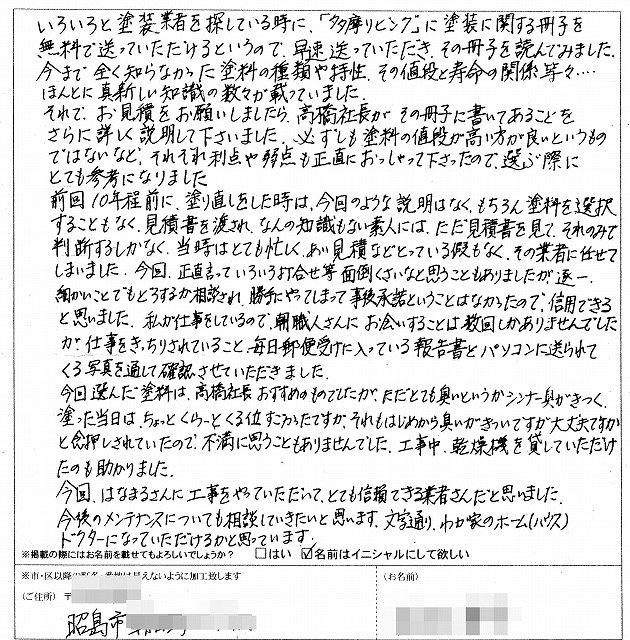 いろいろと塗装業者を探している時に、「多摩リビング」に塗装に関する冊子を
無料で送っていただけるというので、早速送っていただき、その冊子を読んでみました。
今まで全く知らなかった塗料の種類や特性、その値段と寿命の関係等々‥‥
ほんとに真新しい知識の数々が載っていました。
それで、お見積をお願いしましたら、高橋社長がその冊子に書いてあることを
さらに詳しく説明して下さいました。必ずしも塗料の値段が高い方が良いというもの
ではないなど、それぞれ利点や弱点も正直におっしゃって下さったので、選ぶ際に
とても参考になりました
前回10年程前に、塗り直しをした時は、今回のような説明はなく、もちろん塗料を選択
することもなく、見積書を渡され、なんの知識もない素人には、ただ見積書を見て、それのみで
判断するしかなく、当時はとても忙しく、あい見積などとっている暇もなく、その業者に任せて
しまいました。今回、正直言っていろいろ打合せ等面倒くさいなと思うこともありましたが、逐一、
細かいことでもどうするか相談され、勝手にやってしまって事後承諾ということはなかったので、信用できる
と思いました。私が仕事をしているので、朝職人さんにお会いすることは数回しかありませんでした
が、仕事をきっちりされていること、毎日郵便受けに入っている報告書とパソコンに送られて
くる写真を通して確認させていただきました。
今回選んだ塗料は、高橋社長おすすめのものでしたが、ただとても臭いというかシンナー臭がきつく、
塗った当日は、ちょっとくらーっとくる位すごかったですが、それもはじめから臭いがきついですが大丈夫ですか
と念押しされていたので、不満に思うこともありませんでした。工事中、乾燥機を貸していただけ
たのも助かりました。
今回、はなまるさんに工事をやっていただいて、とても信頼できる業者さんだと思いました。
今後のメンテナンスについても相談していきたいと思います。文字通り、わが家のホーム(ハウス)
ドクターになっていただけるかと思っています。
※掲載の際にはお名前を載せてもよろしいでしょうか? □はい ☑名前はイニシャルにして欲しい
※市・区以降の町名・番地は見えないように加工致します
(ご住所) 〒
(お名前)
昭島市